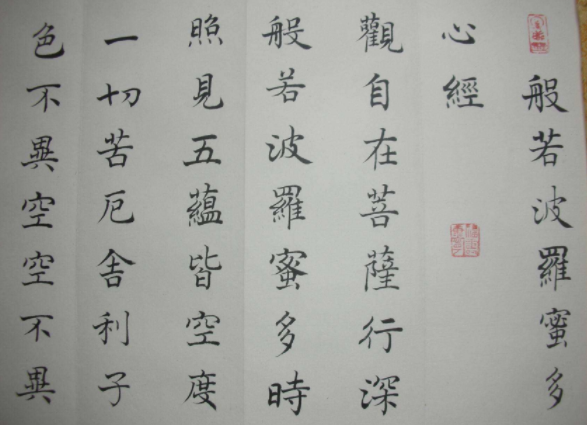 般若波羅蜜多
心經
觀自在菩薩行深
般若波羅蜜多時
照見五蘊皆空度
一切苦厄舍利子
色不異空空不異